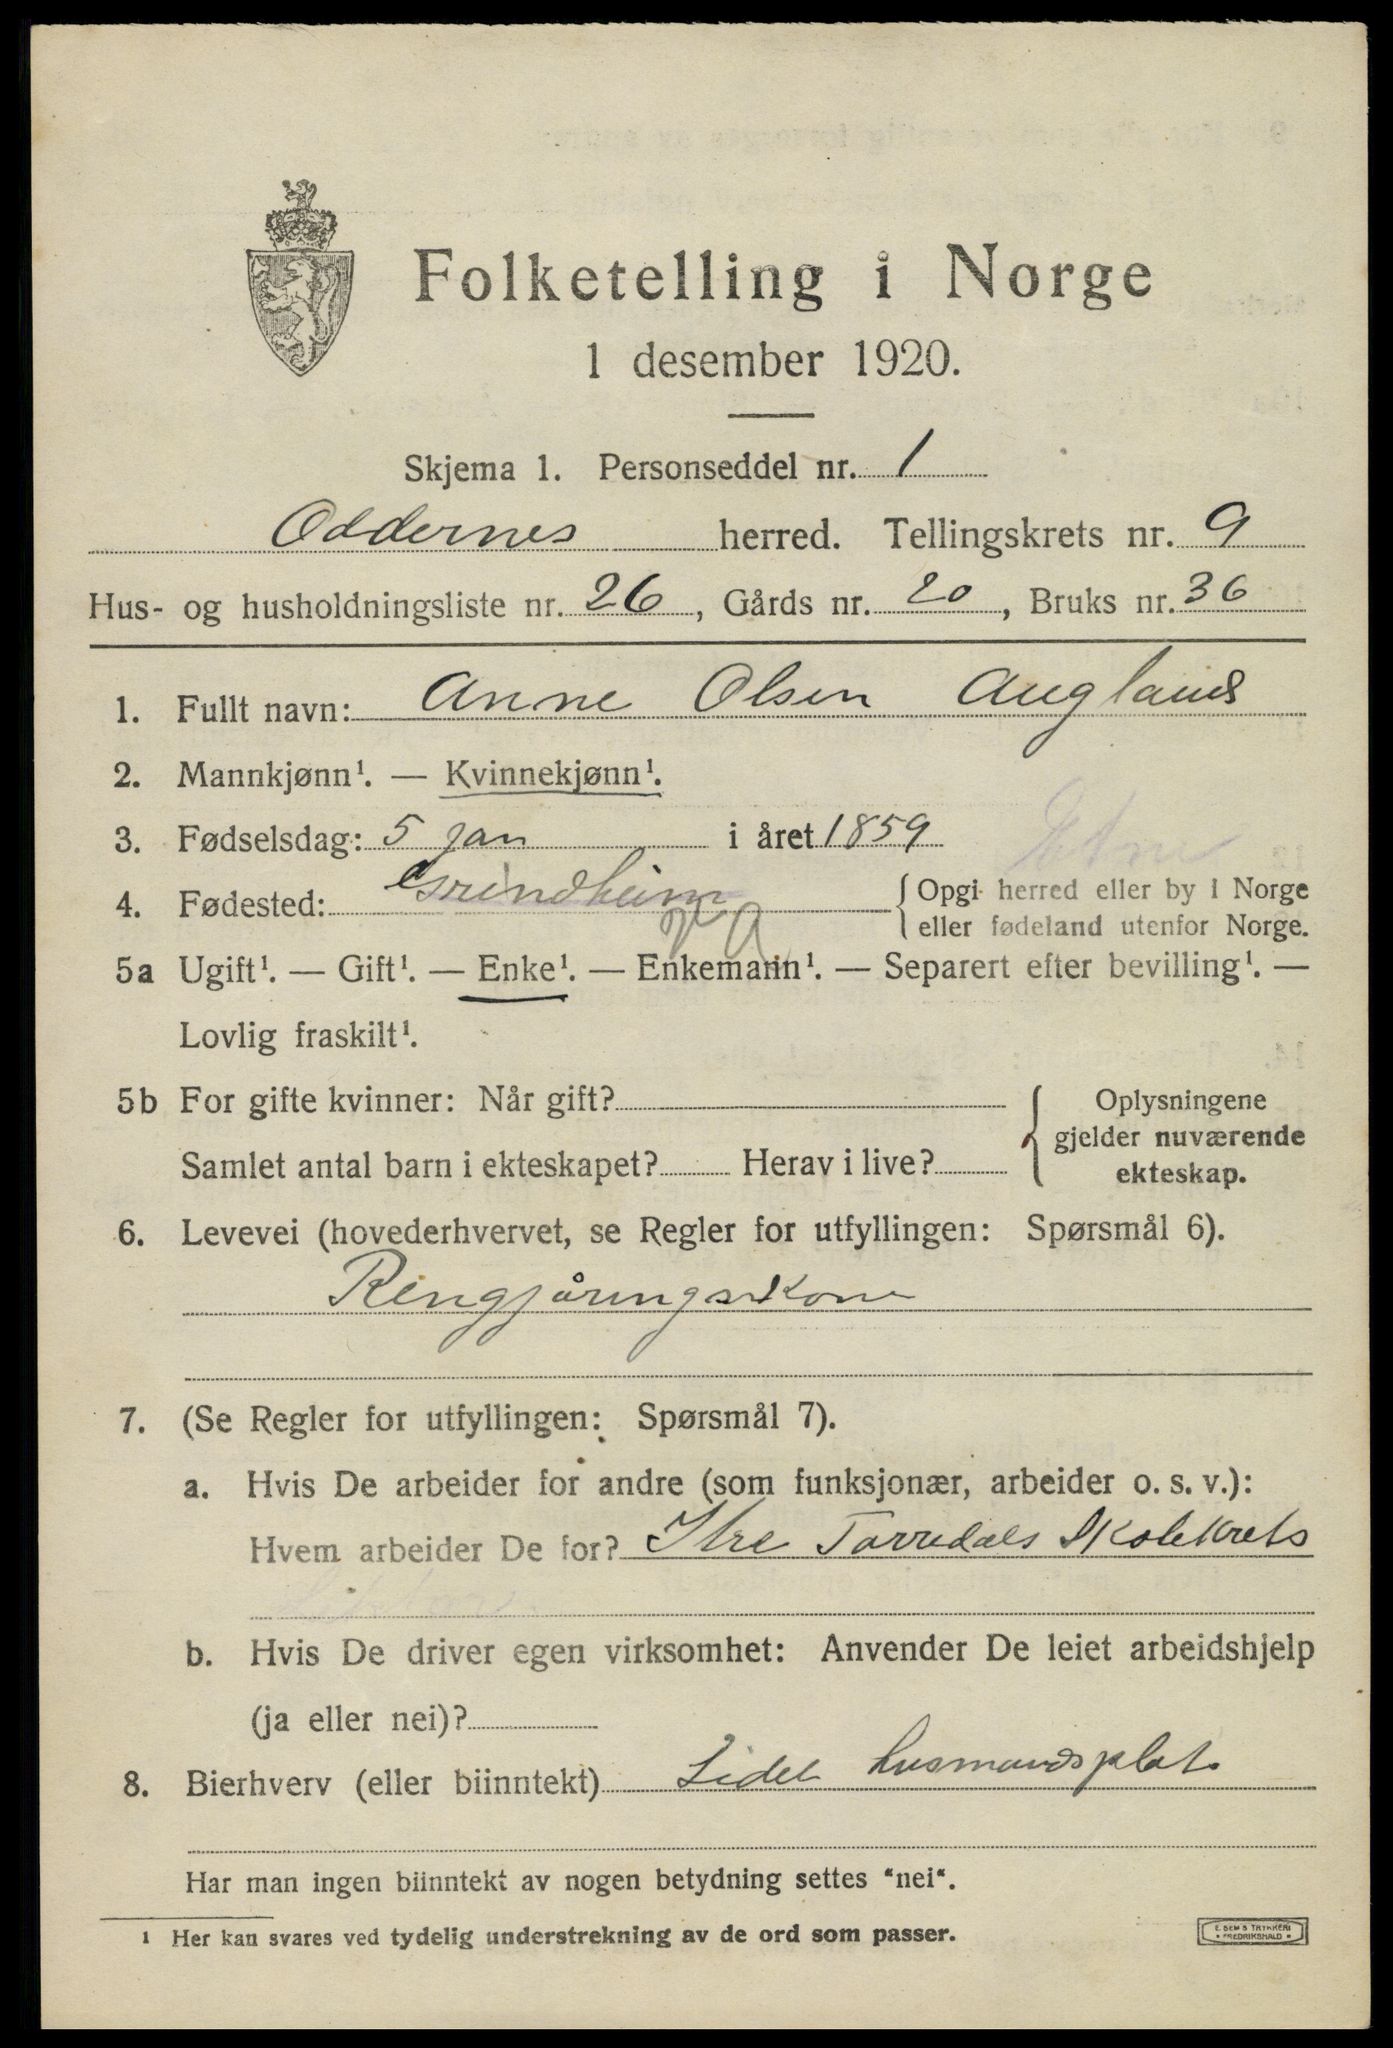 Folketelling i Norge
1 desember 1920.
Skjema 1. Personseddel nr. 1
Oddernes herred. Tellingskrets nr. 9
Hus- og husholdningsliste nr. 26, Gårds nr. 20, Bruks nr. 36
1. Fullt navn: Anne Olsen Augland
2. Mannkjønn¹. — Kvinnekjønn¹.
3. Fødselsdag: 5 jan i året 1859
4. Fødested: Grindheim { Opgi herred eller by i Norge
eller fødeland utenfor Norge.
5a Ugift¹. — Gift¹. — Enke¹. — Enkemann¹. — Separert efter bevilling¹. —
Lovlig fraskilt¹.
5b For gifte kvinner: Når gift?
Samlet antal barn i ekteskapet? Herav i live?
Oplysningene
gjelder nuværende
ekteskap.
6. Levevei (hovederhvervet, se Regler for utfyllingen: Spørsmål 6).
Rengjåringskone
7. (Se Regler for utfyllingen: Spørsmål 7).
a. Hvis De arbeider for andre (som funksjonær, arbeider o. s. v.):
Hvem arbeider De for? Itre Torredals Skolekrets
b. Hvis De driver egen virksomhet: Anvender De leiet arbeidshjelp
(ja eller nei)?
8. Bierhverv (eller biinntekt) Lidet husmandsplats
Har man ingen biinntekt av nogen betydning settes "nei".
¹ Her kan svares ved tydelig understrekning av de ord som passer.
E. SEM'S TRYKKERI
FREDRIKSHALD